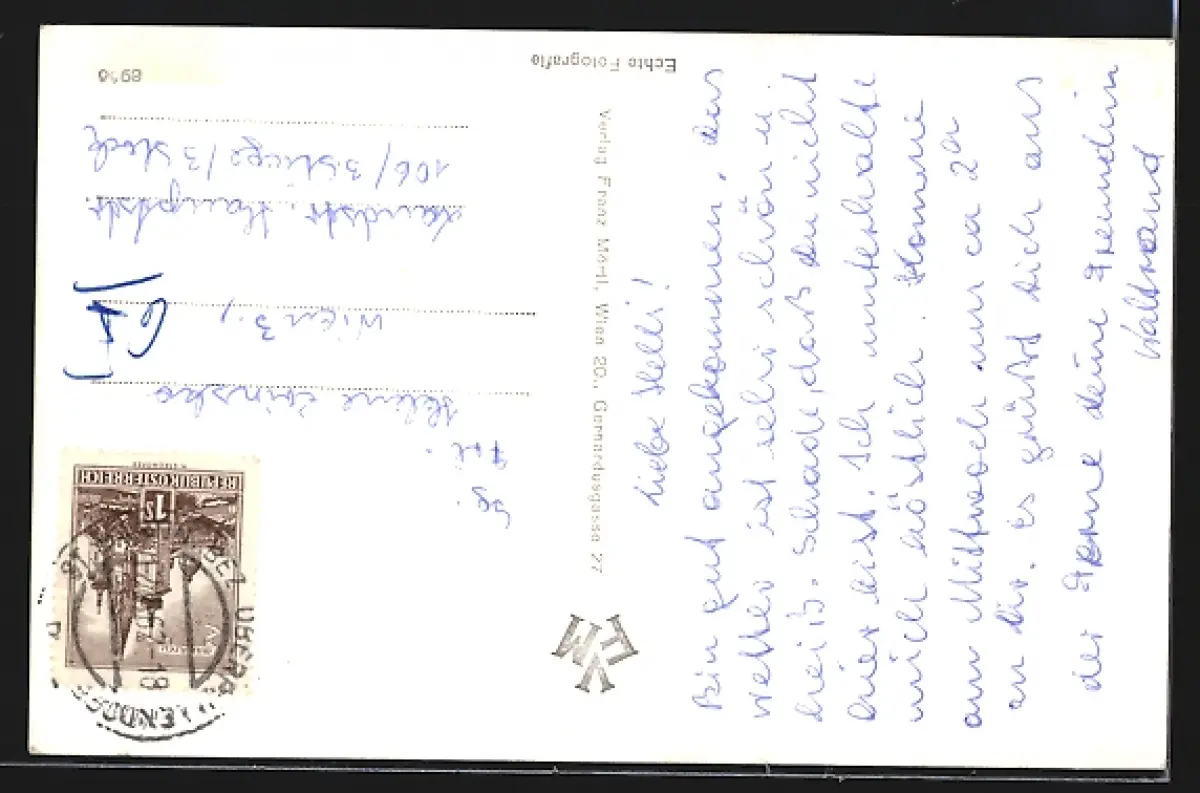 Echte Fotografie
Liebe Helli!
Bin gut angekommen, das
Wetter ist sehr schön u.
heiß. Schade, daß du nicht
hier bist. Ich unterhalte
mich köstlich. Komme
am Mittwoch um ca 2h
an. Es grüßt dich aus
der Ferne deine Freundin
Waltraud
Verlag Franz Mörtl, Wien 20., Gerhardusgasse 27
VFM
REPUBLIK ÖSTERREICH
1S
-18
Sg.
Frl.
Helene
Wien 3.,
Landstr. Hauptstr.
106/3 Stiege/3 Stock